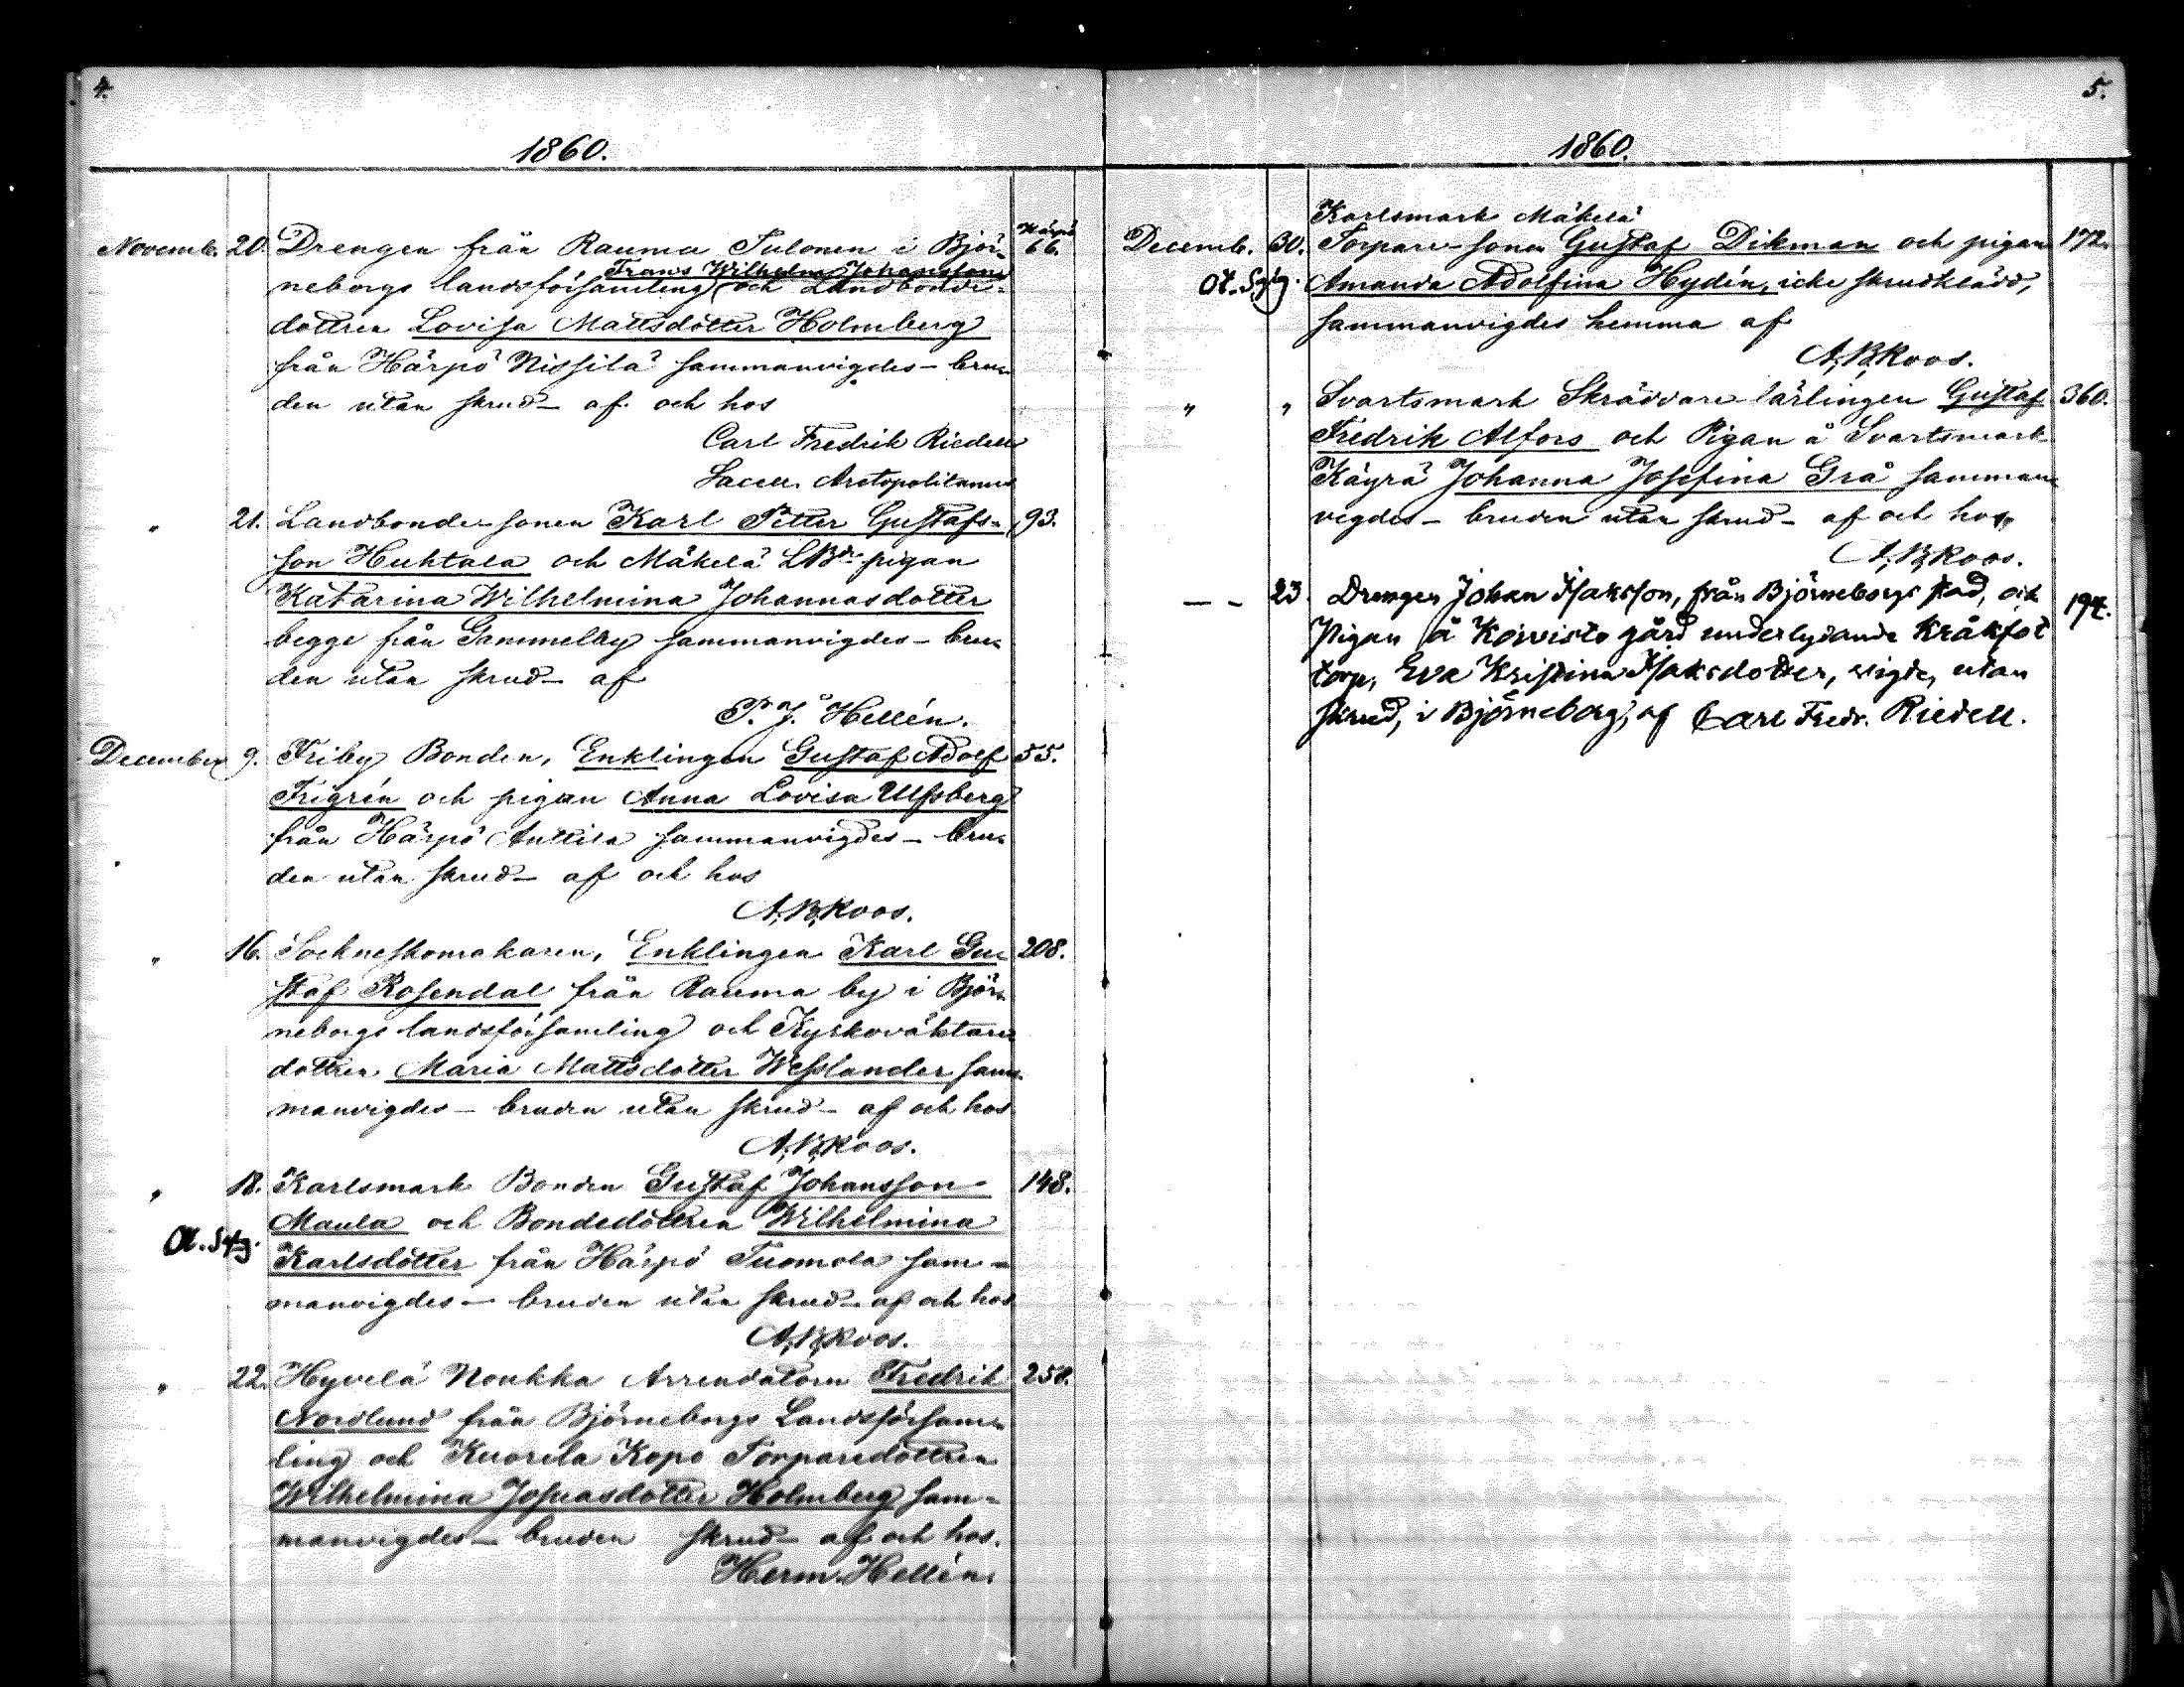 4.
1860.
Novemb. 20. Drengen från Rauma Tulonen i Björ- Härpö 66.
Frans Wilhelm Johansson
neborgs landsförsamling och Landbonde-
dottren Lovisa Mattsdotter Holmberg
från Härpö Nissilä sammanvigdes - bru-
den utan skrud - af och hos
Carl Fredrik Riedell
Sacell. Arctopolitanus
" 21. Landbonde-sonen Karl Petter Gustafs- 93.
son Huhtala och Mäkelä LBde pigan
Katarina Wilhelmina Johannasdotter
begge från Gammelby sammanvigdes - bru-
den utan skrud - af
P. J. Hellén.
December 9. Friby Bonden, Enklingen Gustaf Adolf 55.
Frigrén och pigan Anna Lovisa Ulfsberg
från Härpö Anttila sammanvigdes - bru-
den utan skrud - af och hos
A.B.Roos.
" 16. Sockneskomakaren, Enklingen Karl Gu- 208.
staf Rosendal från Rauma by i Björ-
neborgs landsförsamling och Kyrkoväktare
dottren Maria Mattsdotter Wesslander sam-
manvigdes - bruden utan skrud - af och hos
A.B.Roos.
" 18. Karlsmark Bonden Gustaf Johansson 148.
Maula och Bondedottren Wilhelmina
Karlsdotter från Härpö Tuomola sam-
manvigdes - bruden utan skrud - af och hos
A.B.Roos.
" 22. Hyvelä Noukka Arrendatorn Fredrik 258.
Nordlund från Björneborgs Landsförsam-
ling och Kuorila Kopo Torparedottren
Wilhelmina Josuasdotter Holmberg sam-
manvigdes - bruden skrud - af och hos.
Herm. Hellén.
5.
1860.
Karlsmark Mäkelä
Decemb. 30. Torpare-sonen Gustaf Dikman och pigan 172.
Amanda Adolfina Hydén, icke skrudklädd,
sammanvigdes hemma af
A.B.Roos.
" " Svartsmark Skräddare-lärlingen Gustaf 360.
Fredrik Alfors och Pigan å Svartsmark
Käyrä Johanna Josefina Grå samman-
vigdes - bruden utan skrud - af och hos
A.B.Roos.
- - 23. Drengen Johan Isaksson, från Björneborgs stad, och 194.
Pigan å Koivisto gård underlydande Kråkfot
torp, Eva Kristina Isaksdotter, vigde, utan
skrud, i Björneborg, af Carl Fredr. Riedell.